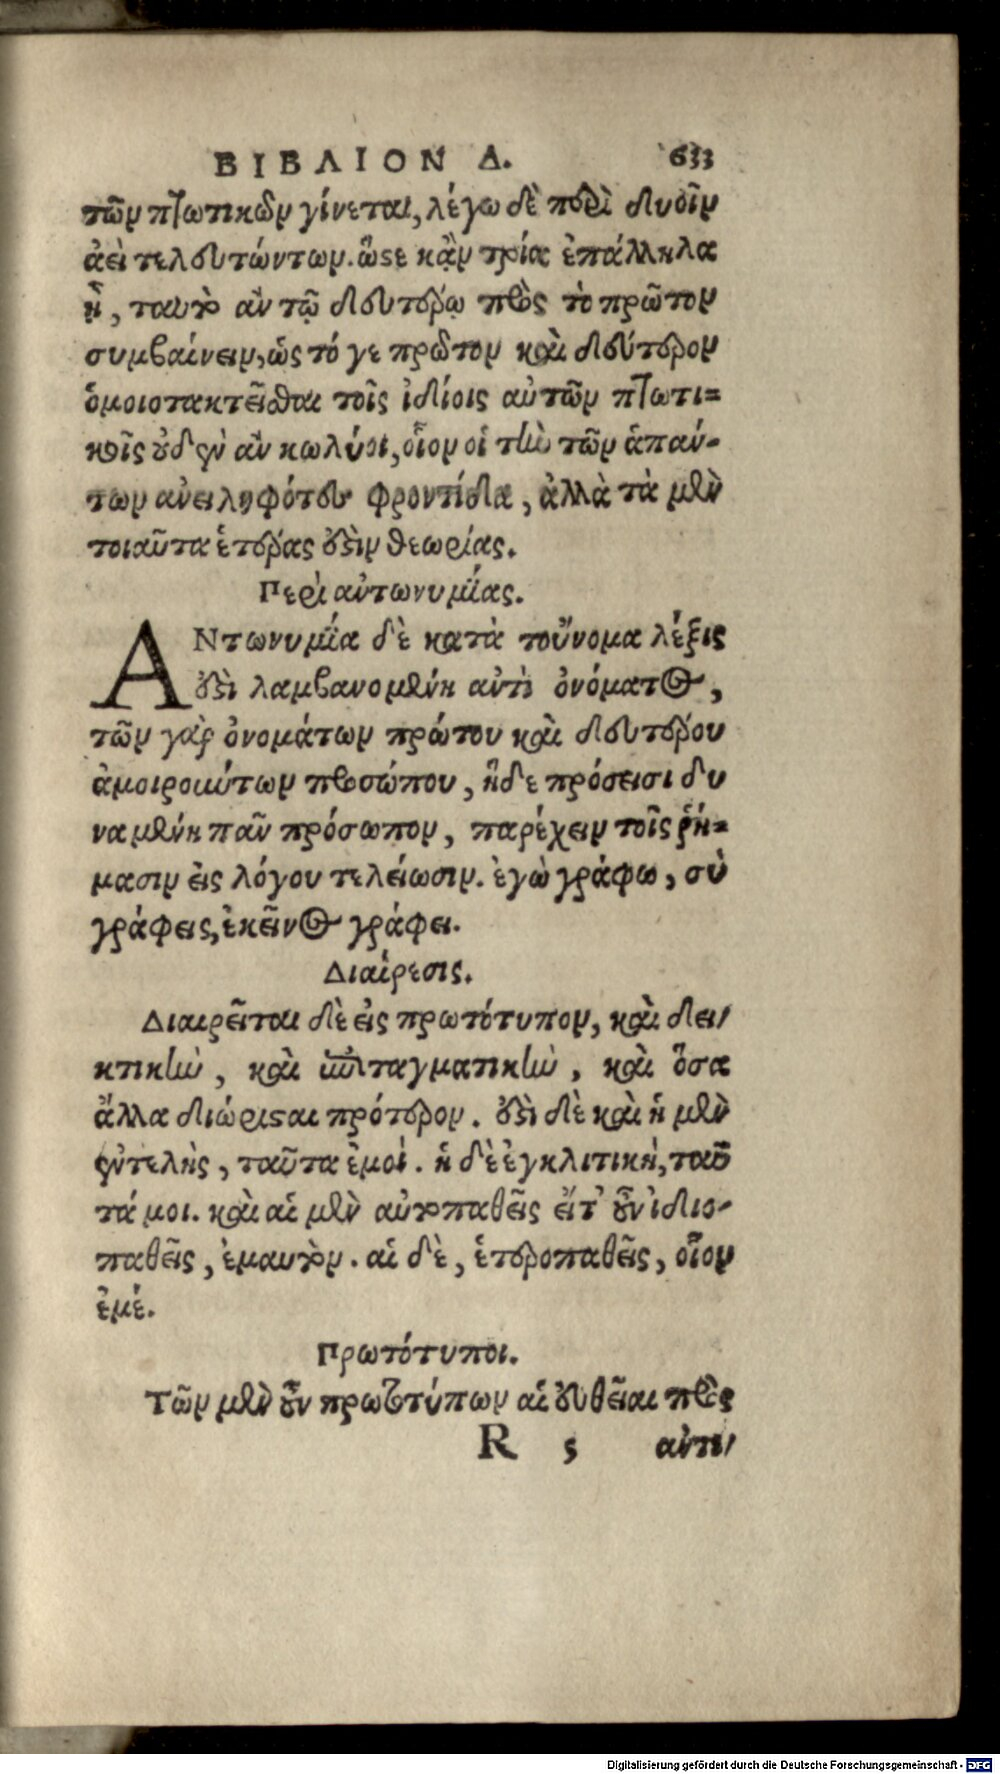 ΒΙΒΛΙΟΝ Δ. 633
τῶν πτωτικῶν γίνεται, λέγω δὲ περὶ δυοῖν
ἀεὶ τελευτώντων. ὥστε κᾂν τρία ἐπάλληλα
ᾖ, ταυτὸ αὖ τῷ δευτέρῳ πρὸς τὸ πρῶτον
συμβαίνειν, ὡς τό γε πρῶτον καὶ δεύτερον
ὁμοιοτακτεῖσθαι τοῖς ἰδίοις αὐτῶν πτωτι=
κοῖς οὐδὲν ἂν κωλύοι, οἷον οἱ τὴν τῶν ἁπάν-
των ἀνειληφότες φροντίδα, ἀλλὰ τὰ μὲν
τοιαῦτα ἑτέρας ἐστὶν θεωρίας.
Περὶ ἀντωνυμίας.
ΑΝτωνυμία δὲ κατὰ τοὔνομα λέξις
ἐστὶ λαμβανομένη ἀντὶ ὀνόματος,
τῶν γὰρ ὀνομάτων πρώτου καὶ δευτέρου
ἀμοιρούντων προσώπου, ἥδε πρόσεισι δυ
ναμένη πᾶν πρόσωπον, παρέχειν τοῖς ῥή=
μασιν εἰς λόγου τελείωσιν. ἐγὼ γράφω, σὺ
γράφεις, ἐκεῖνος γράφει.
Διαίρεσις.
Διαιρεῖται δὲ εἰς πρωτότυπον, καὶ δει/
κτικὴν, καὶ ὑποταγματικὴν, καὶ ὅσα
ἄλλα διώρισται πρότερον. ἐστὶ δὲ καὶ ἡ μὲν
ἐντελὴς, ταῦτα ἐμοί. ἡ δὲ ἐγκλιτικὴ, ταῦ
τά μοι. καὶ αἱ μὲν αὐτοπαθεῖς εἴτ' οὖν ἰδιο-
παθεῖς, ἐμαυτὸν. αἱ δὲ, ἑτεροπαθεῖς, οἷον
ἐμέ.
Πρωτότυποι.
Τῶν μὲν οὖν πρωτοτύπων αἱ εὐθεῖαι πρὸς
R 5 ἀντι/
Digitalisierung gefördert durch die Deutsche Forschungsgemeinschaft - DFG